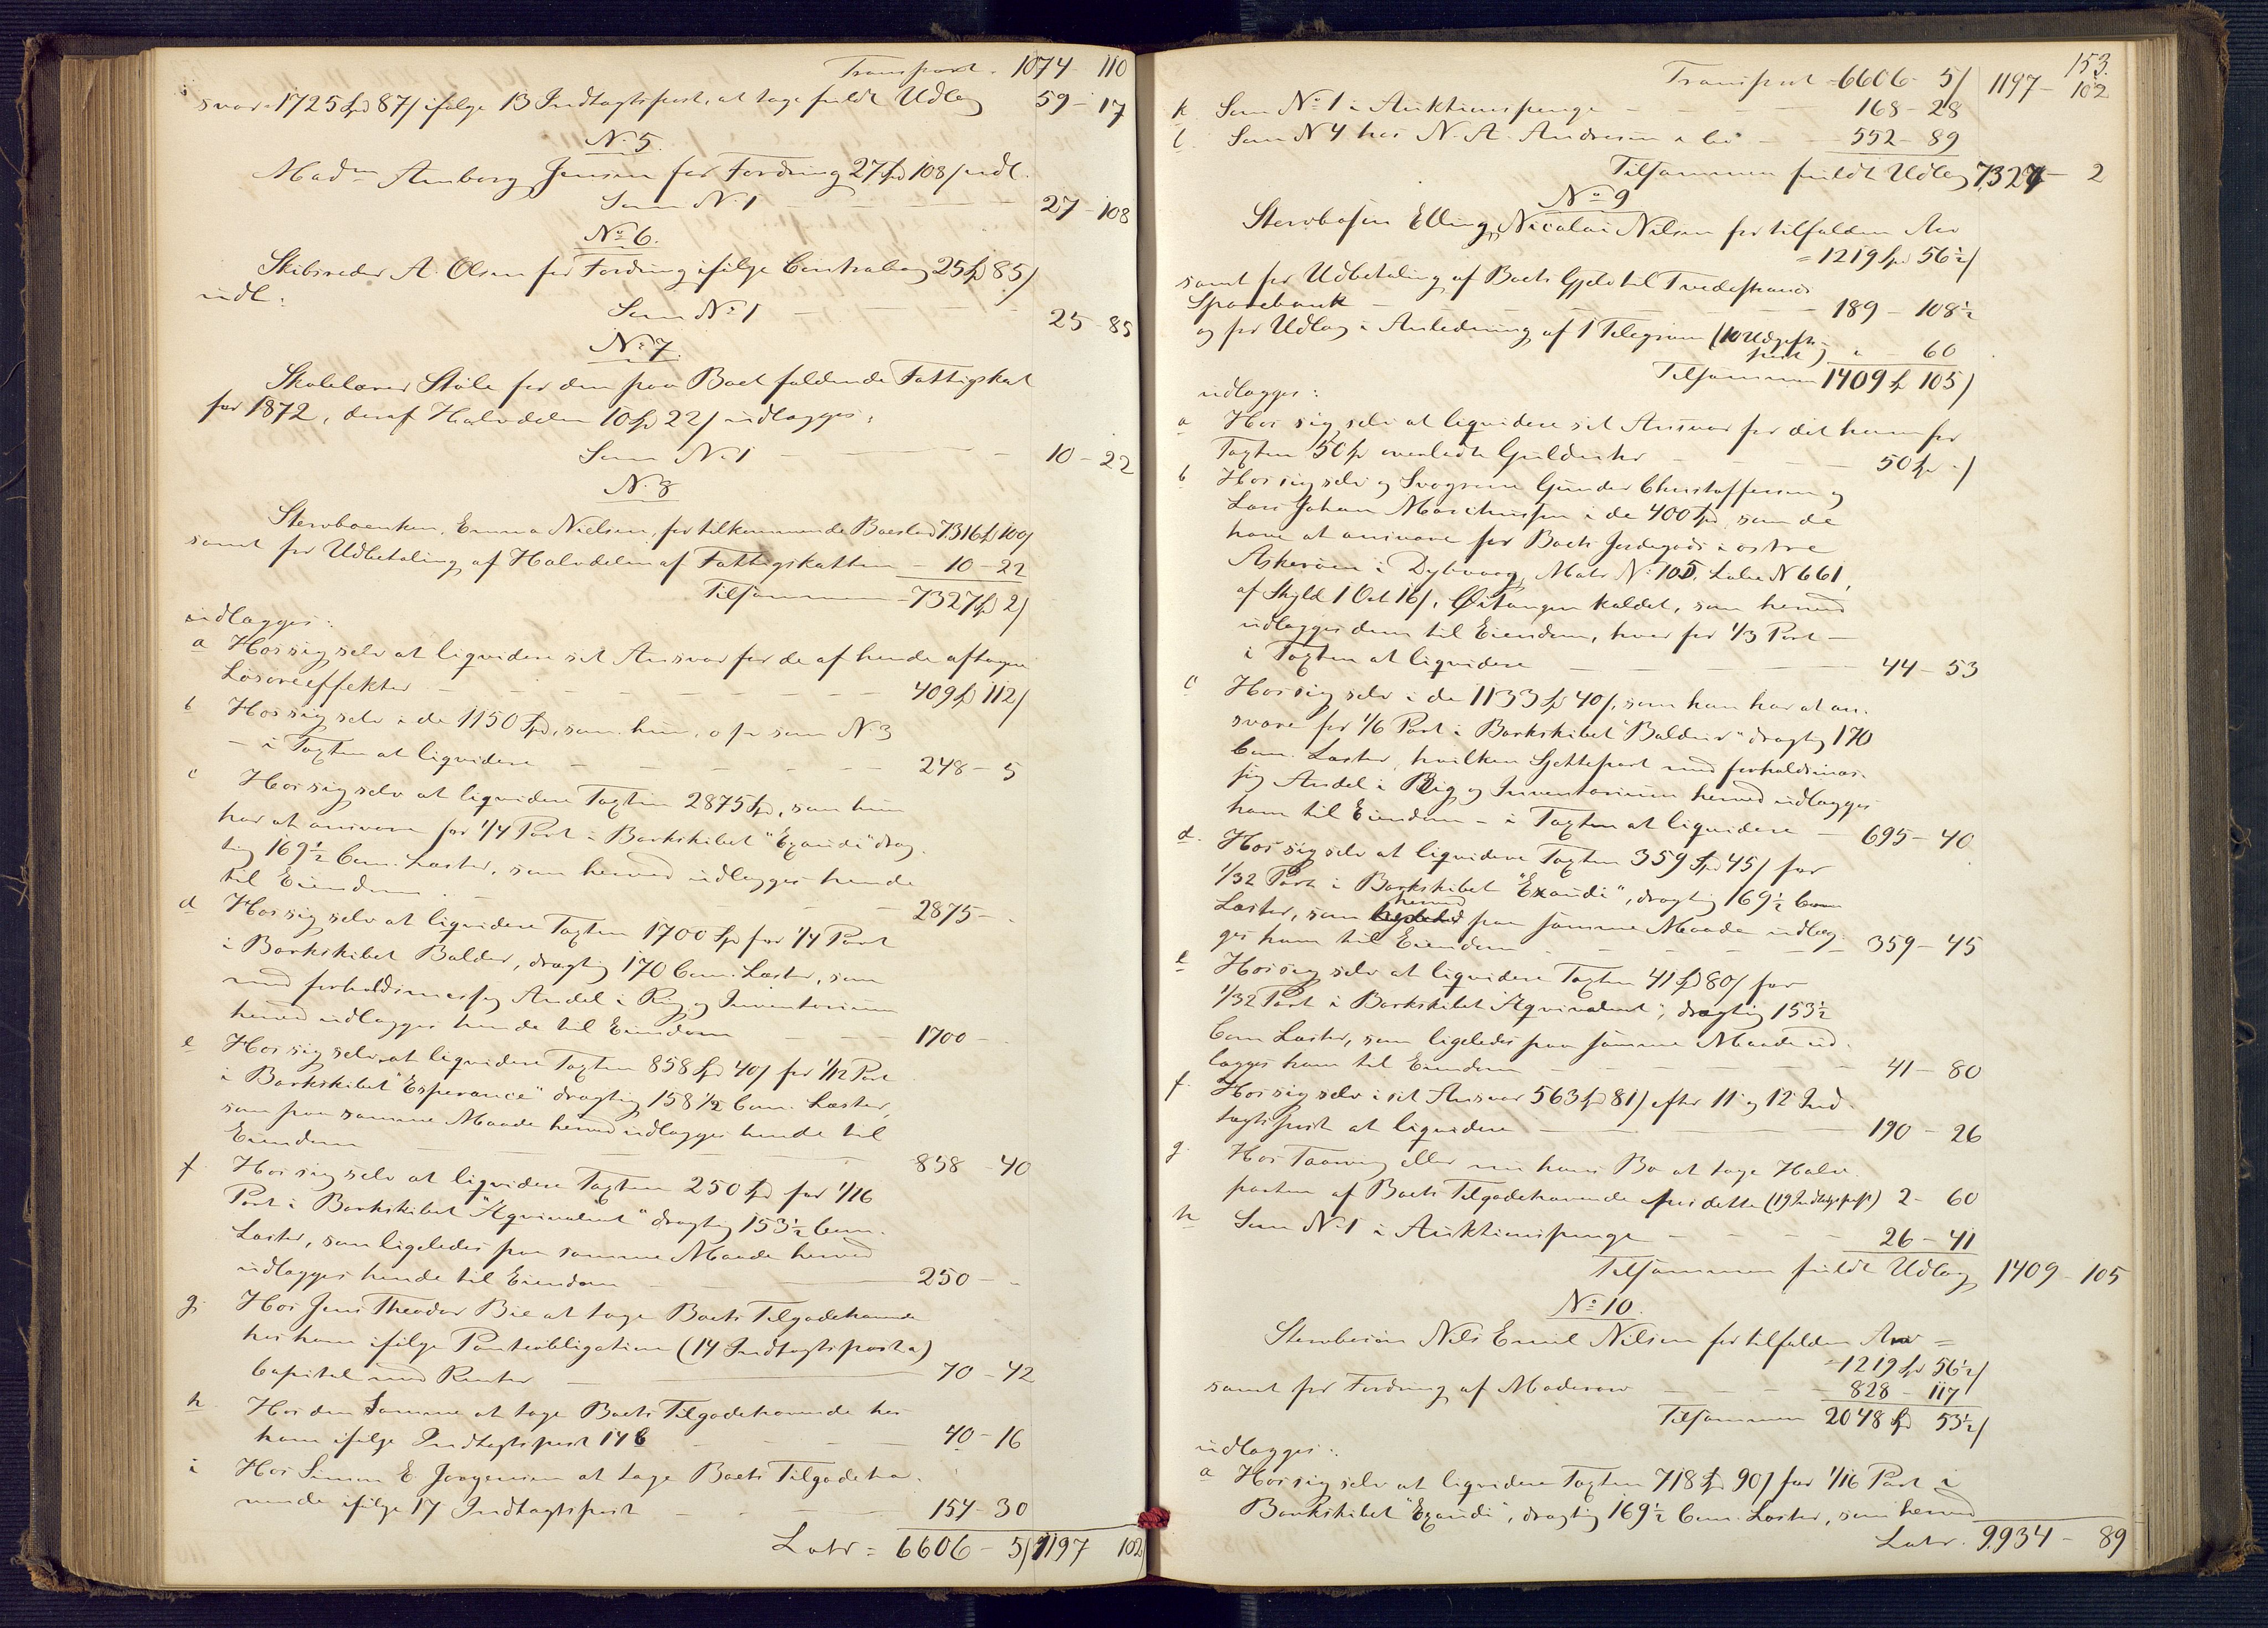 Transport - 1074 - 110
svar 1725 Spd 87 / ifølge 13 Indtægtspost, at tage fuldt Udlæg 59 - 17
No 5.
Madm Amborg Jensen for Fordring 27 Spd 108 / udl.
Som No 1 - - - 27 - 108
No 6.
Skibsreder A. Olsen for Fordring ifølge Contrabog 25 Spd 85 /
udl:
Som No 1 - - - 25 - 85
No 7.
Skolelærer Ståle for den paa Boet faldende Fattigskat
for 1872, deraf Halvdelen 10 Spd 22 / udlægges:
Som No 1 - - - 10 - 22
No 8
Stervboenken, Emma Nielsen, for tilkommende Boeslod 7316 Spd 100 /
samt for Udbetaling af Halvdelen af Fattigskatten - 10 - 22
Tilsammen - 7327 Spd 2 /
udlægges:
a Hos sig selv at liqvidere sit Ansvar for de af hende aftagne
Løsøreeffekter - - - 409 Spd 112 /
b Hos sig selv i de 1150 Spd, som hun, o fr som No 3
- i Taxten at liqvidere - - - 248 - 5
c Hos sig selv at liqvidere Taxten 2875 Spd, som hun
har at ansvare for 1/4 Part i Barkskibet "Exaudi" dræg-
tig 169 1/2 Com. Læster, som herved udlægges hende
til Eiendom - - - 2875 -
d Hos sig selv at liqvidere Taxten 1700 Spd for 1/4 Part
i Barkskibet Balder, drægtig 170 Com. Læster, som
med forholdsmæssig Andel i Rig og Inventarium
herved udlægges hende til Eiendom - - - 1700 -
e Hos sig selv at liqvidere Taxten 858 Spd 40 / for 1/12 Part
i Barkskibet "Esperance" drægtig 158 1/2 Com. Læster,
som paa samme Maade herved udlægges hende til
Eiendom - - - 858 - 40
f. Hos sig selv at liqvidere Taxten 250 Spd for 1/16
Part i Barkskibet "Æqvivalent" drægtig 153 1/2 Com.
Læster, som ligeledes paa samme Maade herved
udlægges hende til Eiendom - - - 250 - -
g. Hos Jens Theodor Bie at tage Boets Tilgodehavende
hos ham ifølge Panteobligation (14 Indtægtspost a)
Capital med Renter - - - 70 - 42
h. Hos den Samme at tage Boets Tilgodehavende hos
ham ifølge Indtægtspost 14 b - - - 40 - 16
i Hos Simon E. Jørgensen at tage Boets Tilgodeha-
vende ifølge 17 Indtægtspost - - - 154 - 30
Latr = 6606 - 5 / 1197 102
153.
Transport - 6606 - 5 / 1197 - 102
k. Som No 1 i Auktionspenge - - - 168 - 28
l. Som No 4 hos N. A. Andresen & Co - - 552 - 89
Tilsammen fuldt Udlæg 7327 - 2
No 9
Stervbosøn Elling Nicolai Nilsen for tilfalden Arv
= 1219 Spd 56 1/2 /
samt for Udbetaling af Boets Gjæld til Tvedestrands
Sparebank - - - 189 - 108 1/2
og for Udlæg i Anledning af 1 Telegram (10 Udgifts-
post) " - 60
Tilsammen 1409 Spd 105 /
udlægges:
a Hos sig selv at liqvidere sit Ansvar for det ham for
Taxten 50 Spd overladte Gulduhr - - - 50 Spd - /
b Hos sig selv og Svogrene Gunder Christoffersen og
Lars Johan Marthinsen i de 400 Spd, som de
have at ansvare for Boets Jordegods i østre
Askerøen i Dybvaag, Matr No 105, Løbe No 661,
af Skyld 1 Ort 16 /, Øitangen kaldet, som herved
udlægges dem til Eiendom, hver for 1/3 Part -
i Taxten at liqvidere - - - 44 - 53
c Hos sig selv i de 1133 Spd 40 /, som han har at an-
svare for 1/6 Part i Barkskibet "Balder" drægtig 170
Com. Læster, hvilken Sjettepart med forholdsmæs-
sig Andel i Rig og Inventarium herved udlægges
ham til Eiendom - i Taxten at liqvidere - 695 - 40
d. Hos sig selv at liqvidere Taxten 359 Spd 45 / for
1/32 Part i Barkskibet "Exaudi", drægtig 169 1/2 Com
Læster, som herved paa samme Maade udlæg-
ges ham til Eiendom - - - 359 - 45
e Hos sig selv at liqvidere Taxten 41 Spd 80 / for
1/32 Part i Barkskibet "Æqvivalent", drægtig 153 1/2
Com Læster, som ligeledes paa samme Maade ud-
lægges ham til Eiendom - - - 41 - 80
f Hos sig selv i sit Ansvar 563 Spd 81 / efter 11 og 12 Ind-
tægtspost at liqvidere - - - 190 - 26
g. Hos Taarvig eller nu hans Bo at tage Halv-
parten af Boets Tilgodehavende hos dette (19 Indtægtspost) 2 - 60
h Som No 1 i Auktionspenge - - - 26 - 41
Tilsammen fuldt Udlæg 1409 - 105
No 10.
Stervbosøn Nils Emil Nilsen for tilfalden Arv =
= 1219 Spd 56 1/2 /
samt for Fordring af Moderarv - - - 828 - 117
Tilsammen 2048 Spd 53 1/2 /
udlægges:
a Hos sig selv at liqvidere Taxten 718 Spd 90 / for 1/16 Part i
Barkskibet "Exaudi", drægtig 169 1/2 Com. Læster, som herved
Latr. 9934 - 89